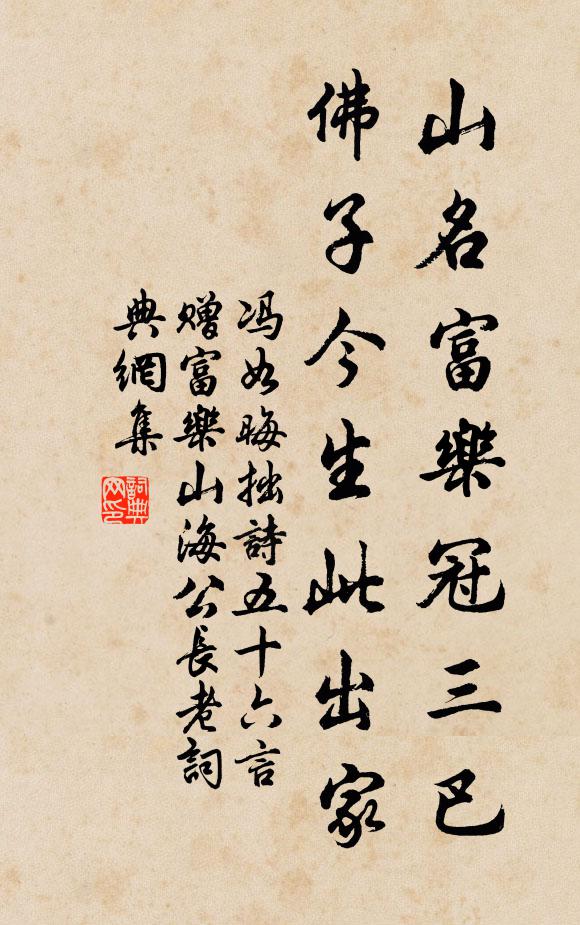 山名富樂冠三巴
佛子今生此出家
冯如晦拙詩五十六言
赠富樂山海公長老詞
典網集
詞典
网印